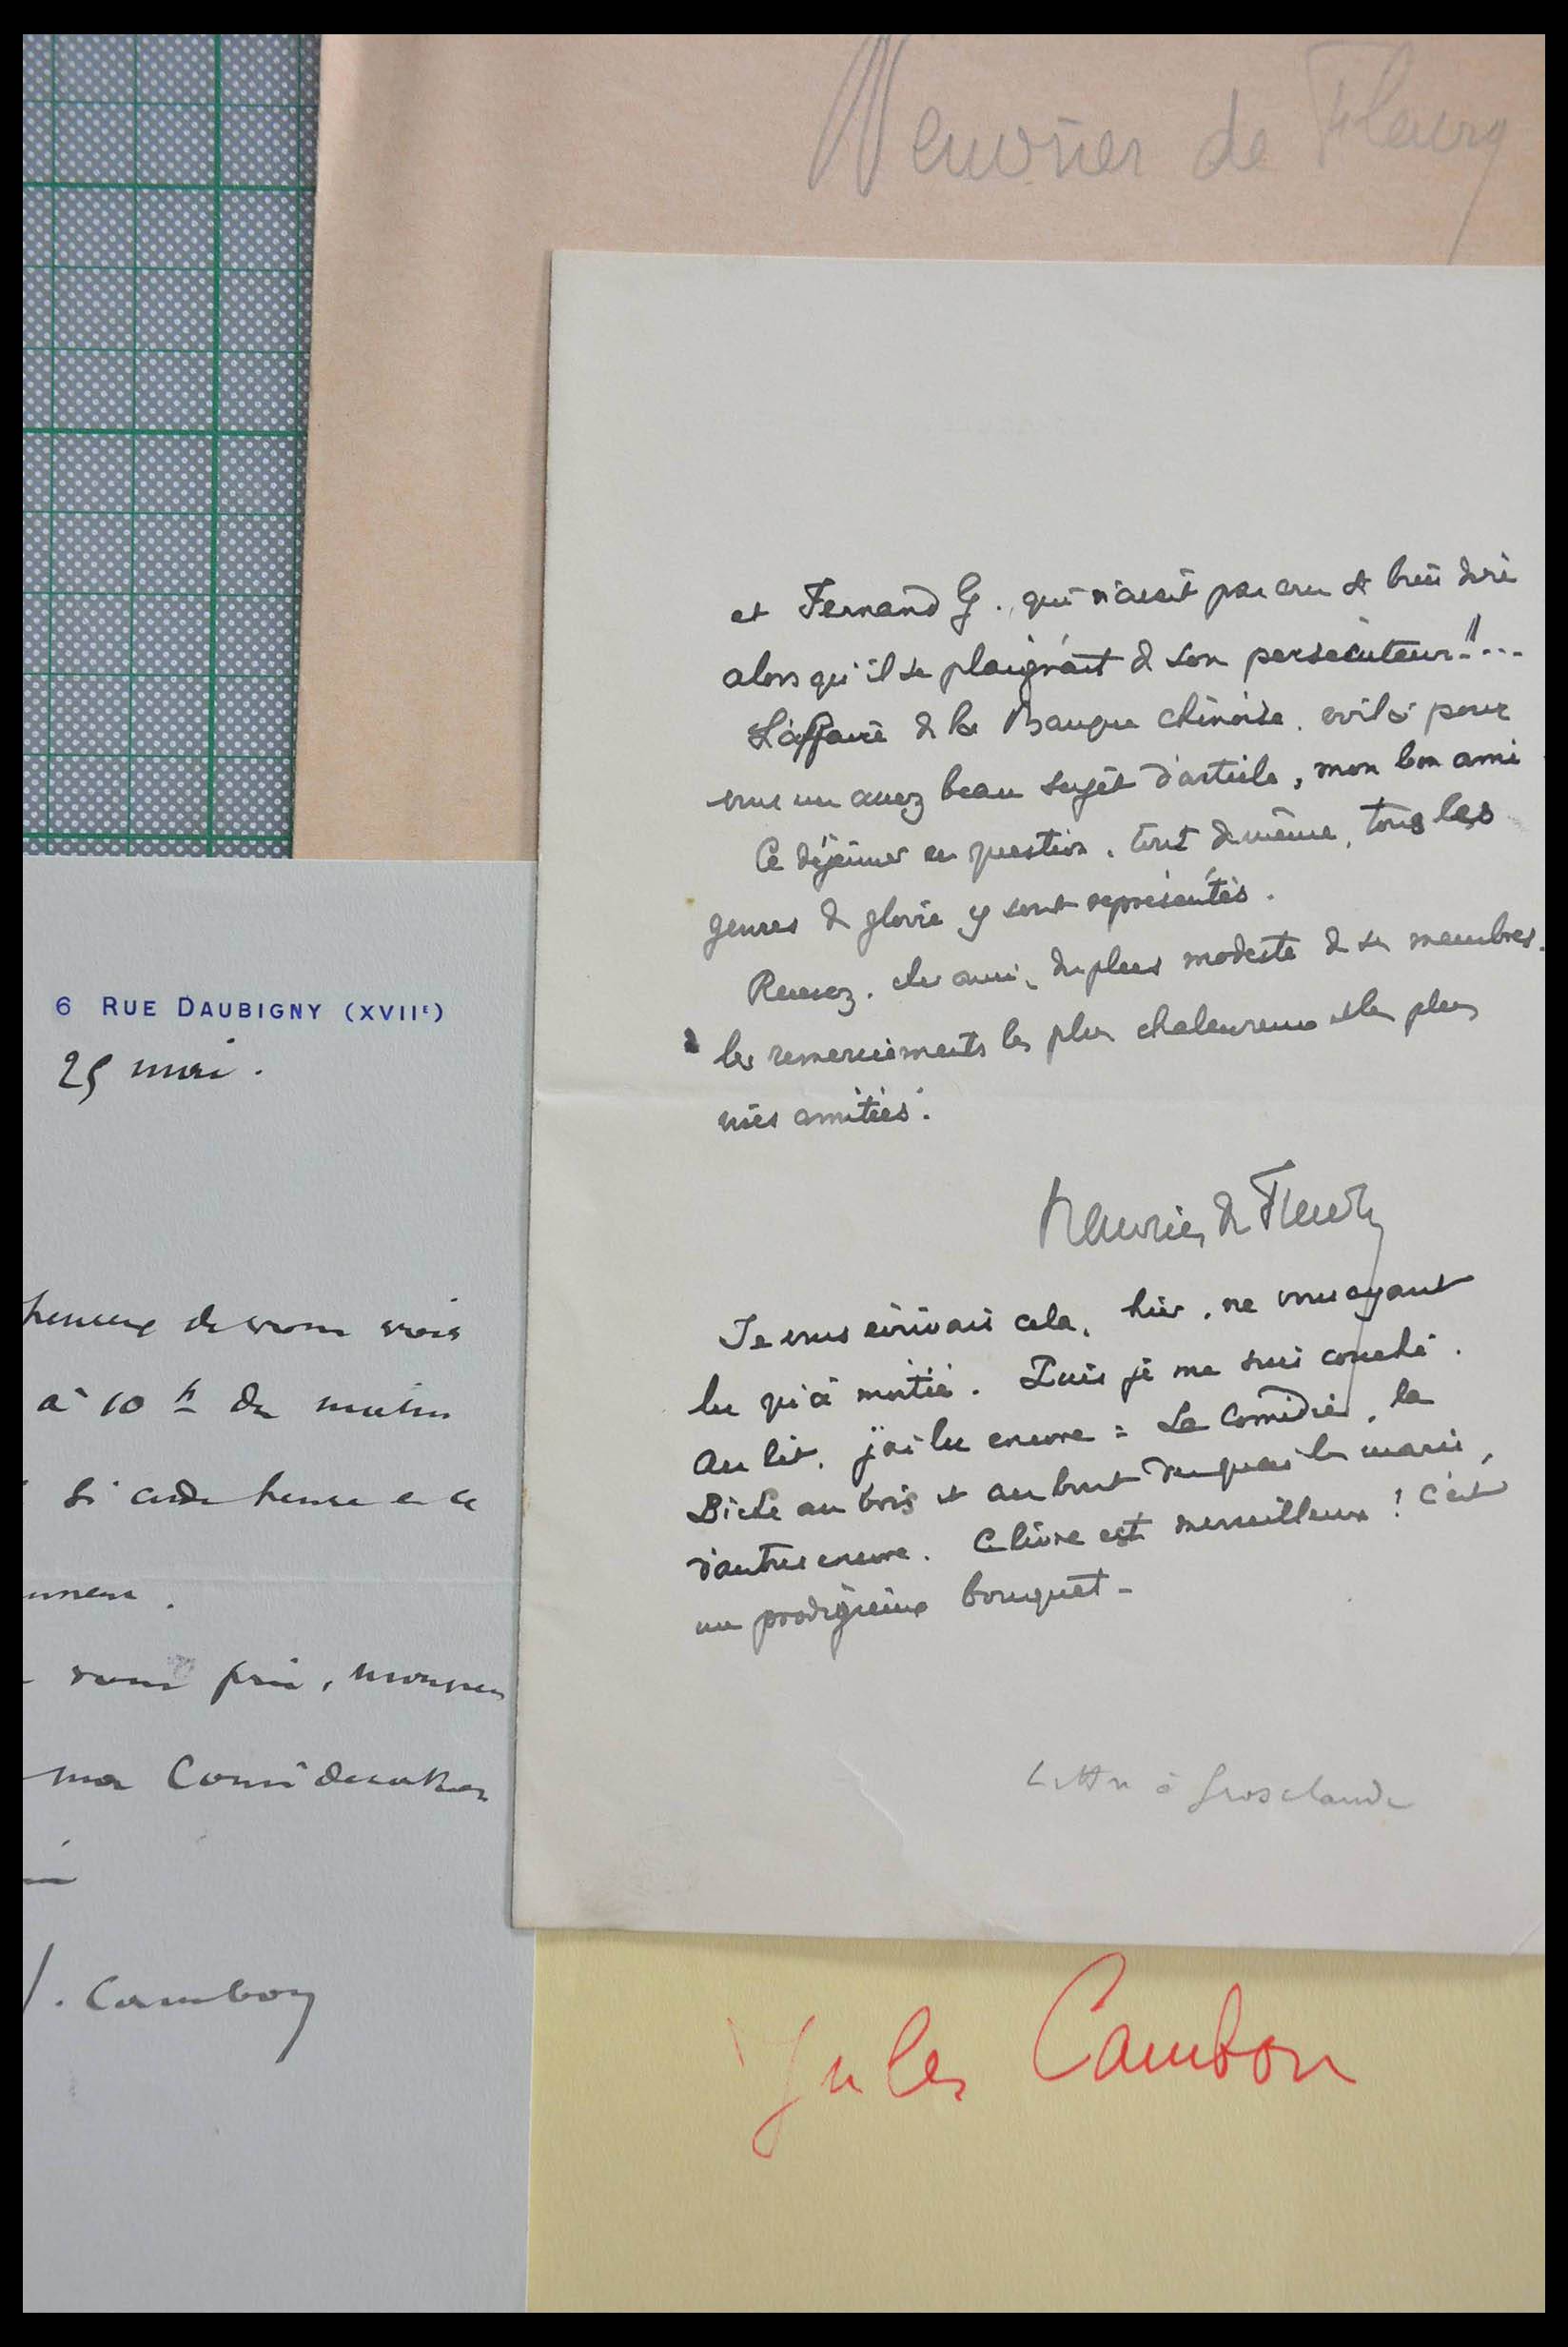 Maurice de Fleury
et Fernand G., qui n'avait pas cru si bien dire
alors qu'il se plaignait de son persécuteur!!...
L'affaire de la Banque chinoise, voilà pour
vous un assez beau sujet d'article, mon bon ami
Ce déjeuner en question, tout de même, tous les
genres de gloire y sont représentés.
Recevez, cher ami, du plus modeste de ses membres,
les remerciements les plus chaleureux et les plus
vives amitiés.
Maurice de Fleury
Je vous écrivais cela, hier, ne vous ayant
lu qu'à moitié. Puis je me suis couché.
Au lit, j'ai lu encore = La Comédie, la
Biche au bois et au bout du quai les maris,
d'autres encore. Ce livre est merveilleux ! C'est
un prodigieux bouquet -
Lettre à Grosclaude
6 RUE DAUBIGNY (XVIIE)
25 mai.
heureux de vous voir
à 10 h du matin
si cette heure
vous prie, monsieur
ma Considération
J. Cambon
Jules Cambon